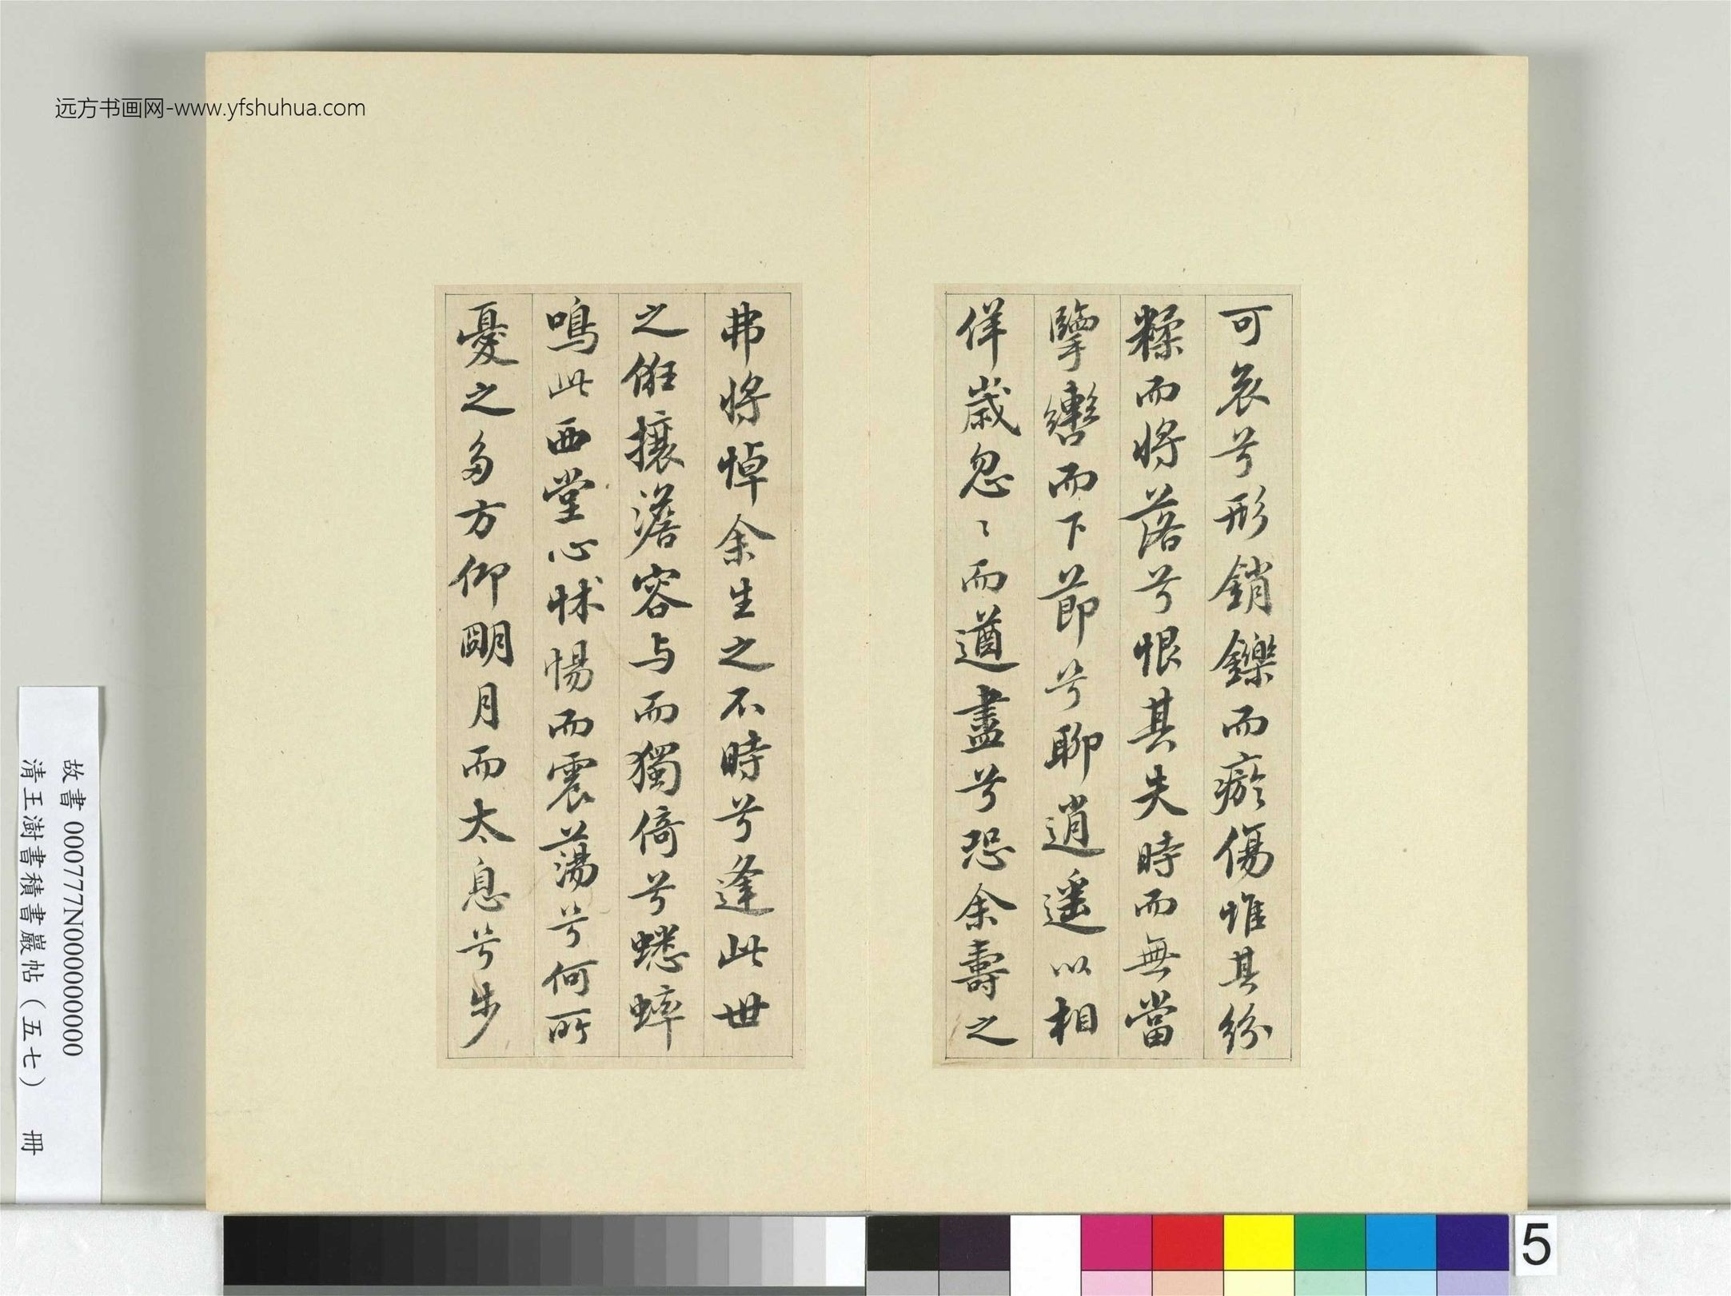 远方书画网-www.yfshuhua.com
可哀兮形銷鑠而瘀傷惟其紛
糅而將落兮恨其失時而無當
擥轡而下節兮聊逍遙以相
佯歲忽〻而遒盡兮恐余壽之
弗將悼余生之不時兮逢此世
之俇攘澹容与而獨倚兮蟋蟀
鳴此西堂心怵惕而震蕩兮何所
憂之多方仰朙月而太息兮步
故書 000777N000000000
清王澍書積書巖帖（五七） 冊
5